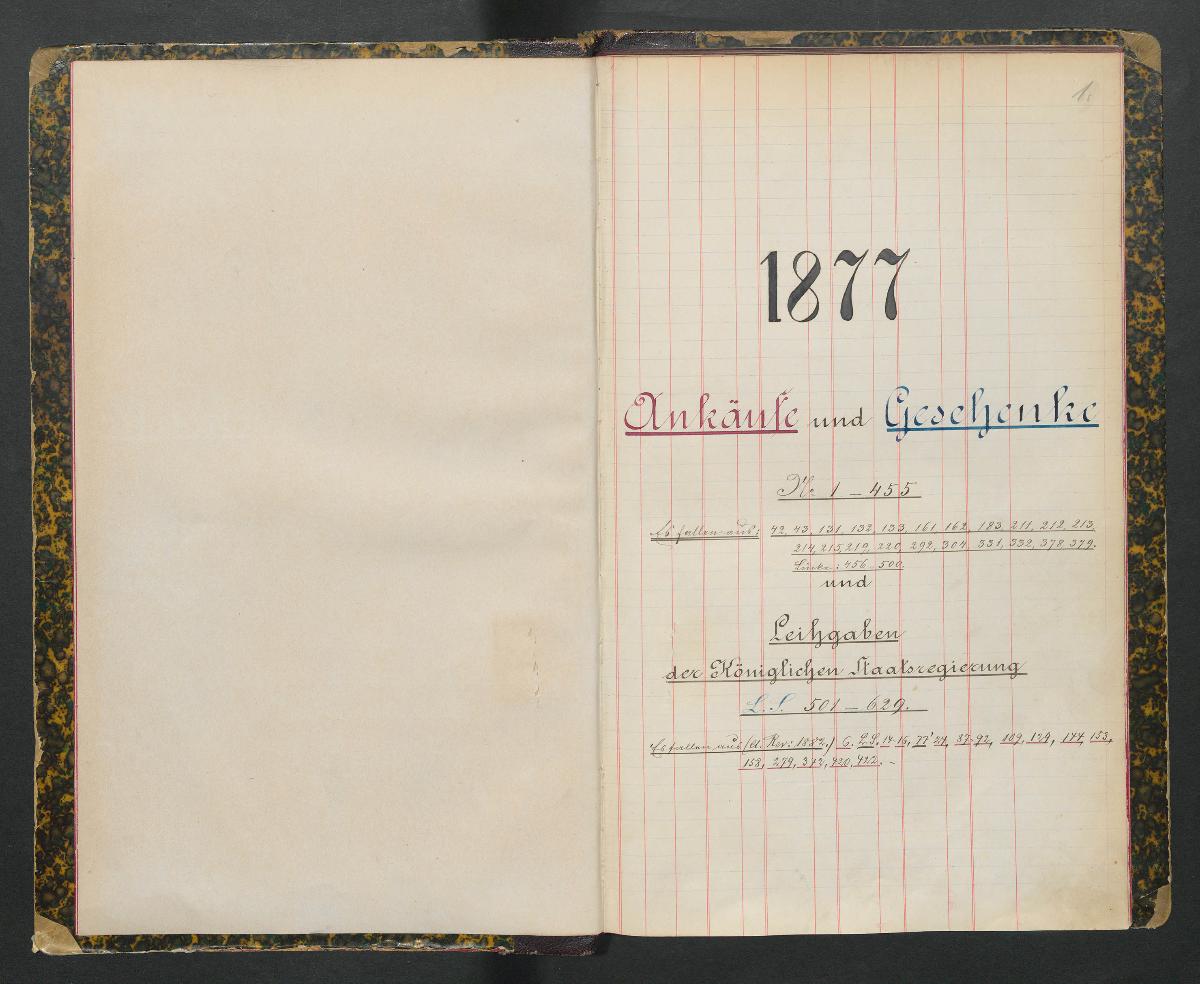 1
1877
Ankäufe und Geschenke
No 1 – 455
Es fallen aus: 42, 43, 131, 132, 133, 161, 162, 183, 211, 212, 213,
214, 215, 219, 220, 292, 304, 331, 332, 378, 379.
Lücke: 456–500.
und
Leihgaben
der Königlichen Staatsregierung
L. S. 501 – 629.
Es fallen aus (d. Rev: 1882.) 6, L.S. 14-15, 27, 87-92, 109, 129, 153,
158, 279, 372, 420, 422. –